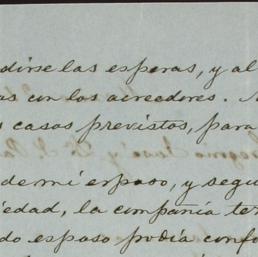 dirse las esperas, y al
as con los acreedores.
s casos previstos, para
de mi esposo, y segu
iedad, la compañia ter
do esposo podia confo